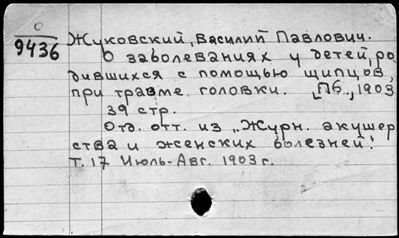 О
9436
Жуковский, Василий Павлович.
О заболеваниях у детей, ро
дившихся с помощью щипцов,
при травме головки. [Пб., 1903
39 стр.
Отд. отт. из „Журн. акушер
ства и женских болезней".
т. 17 Июль-Авг. 1903 г.